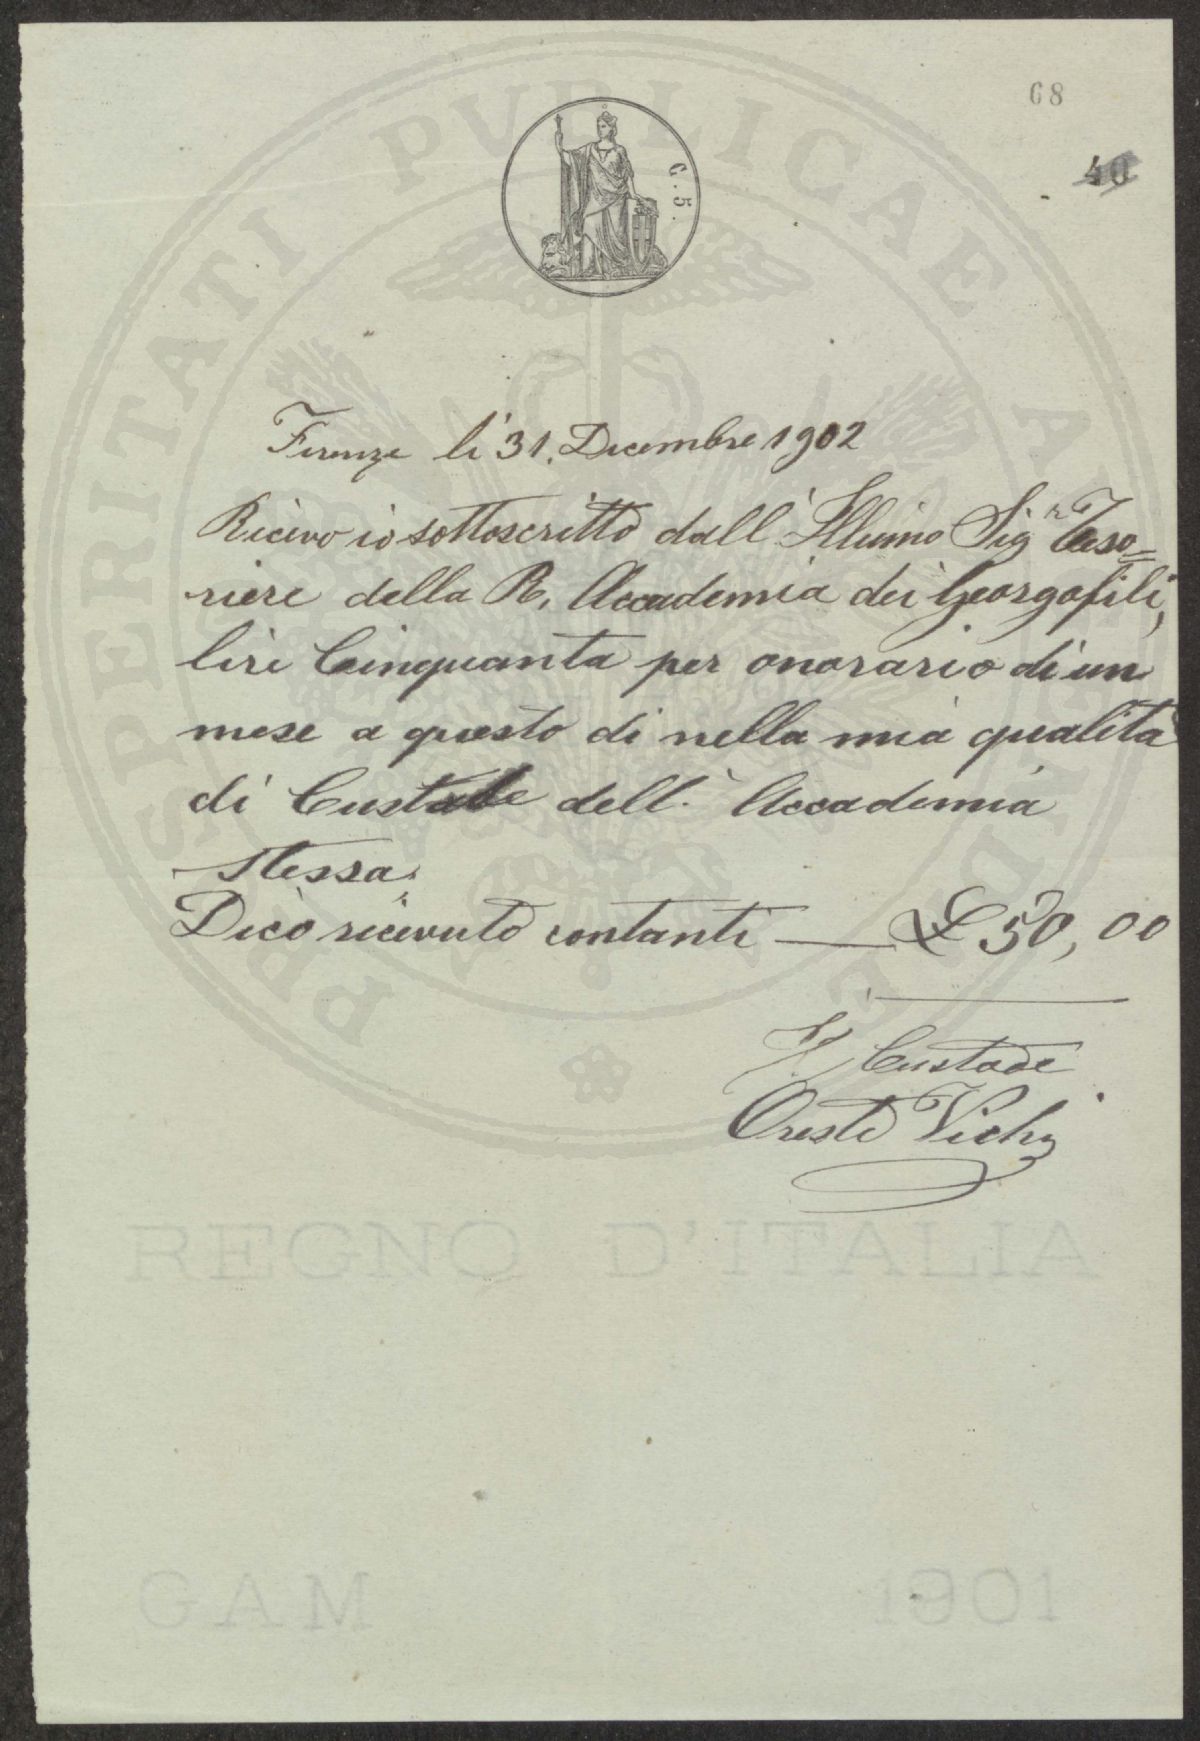 68
40
C. 5.
Firenze li 31. Dicembre 1902
Ricevo io sottoscritto dall' Illumo Sigr Teso=
riere della R. Accademia dei Georgofili,
lire Cinquanta per onorario di un
mese a questo di nella mia qualità
di Custode dell' Accademia
stessa.
Dico ricevuto contanti — £ 50,00
Il Custode
Oreste Vichi
PROSPERITATI PUBLICAE AUGENDAE
REGNO D'ITALIA
GAM 1901